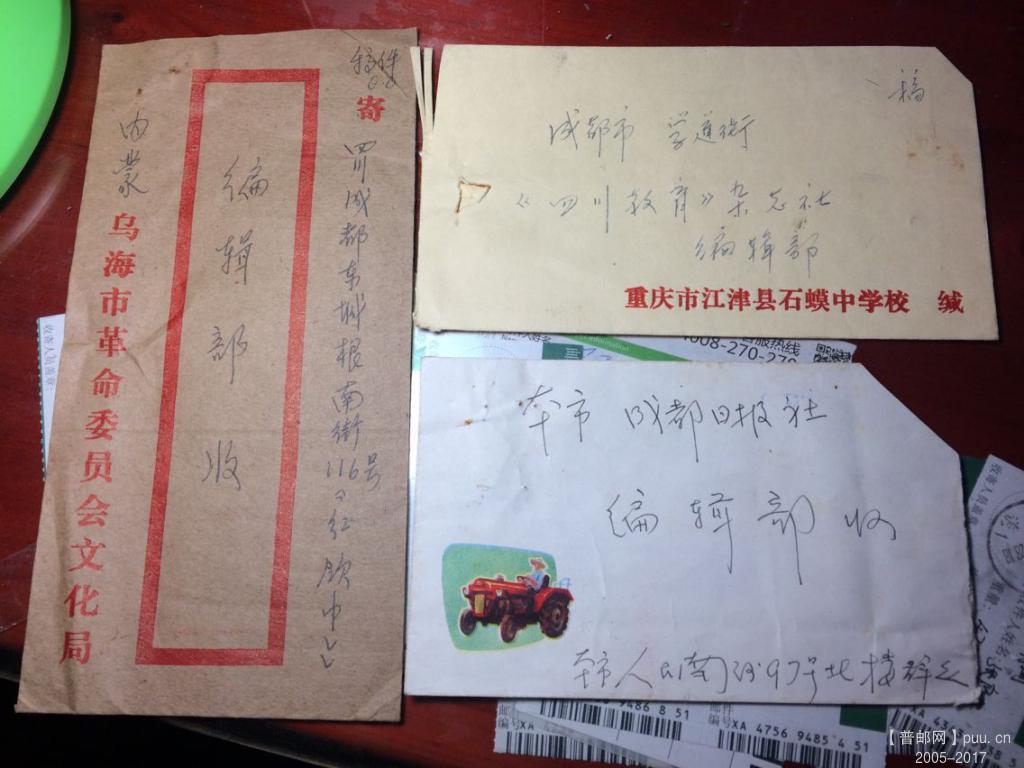 稿件
寄
四川成都东城根南街116号《红领巾》
编辑部收
内蒙
乌海市革命委员会文化局
稿
成都市 学道街
《四川教育》杂志社
编辑部
重庆市江津县石蟆中学校 缄
008-270-270
服热线
本市 成都日报社
编辑部收
本市人民南路97号北楼
收寄人员签章：
9486 8 51
编号XA
XA 4756 9485 4 51
【普邮网】puu.cn
2005-2017